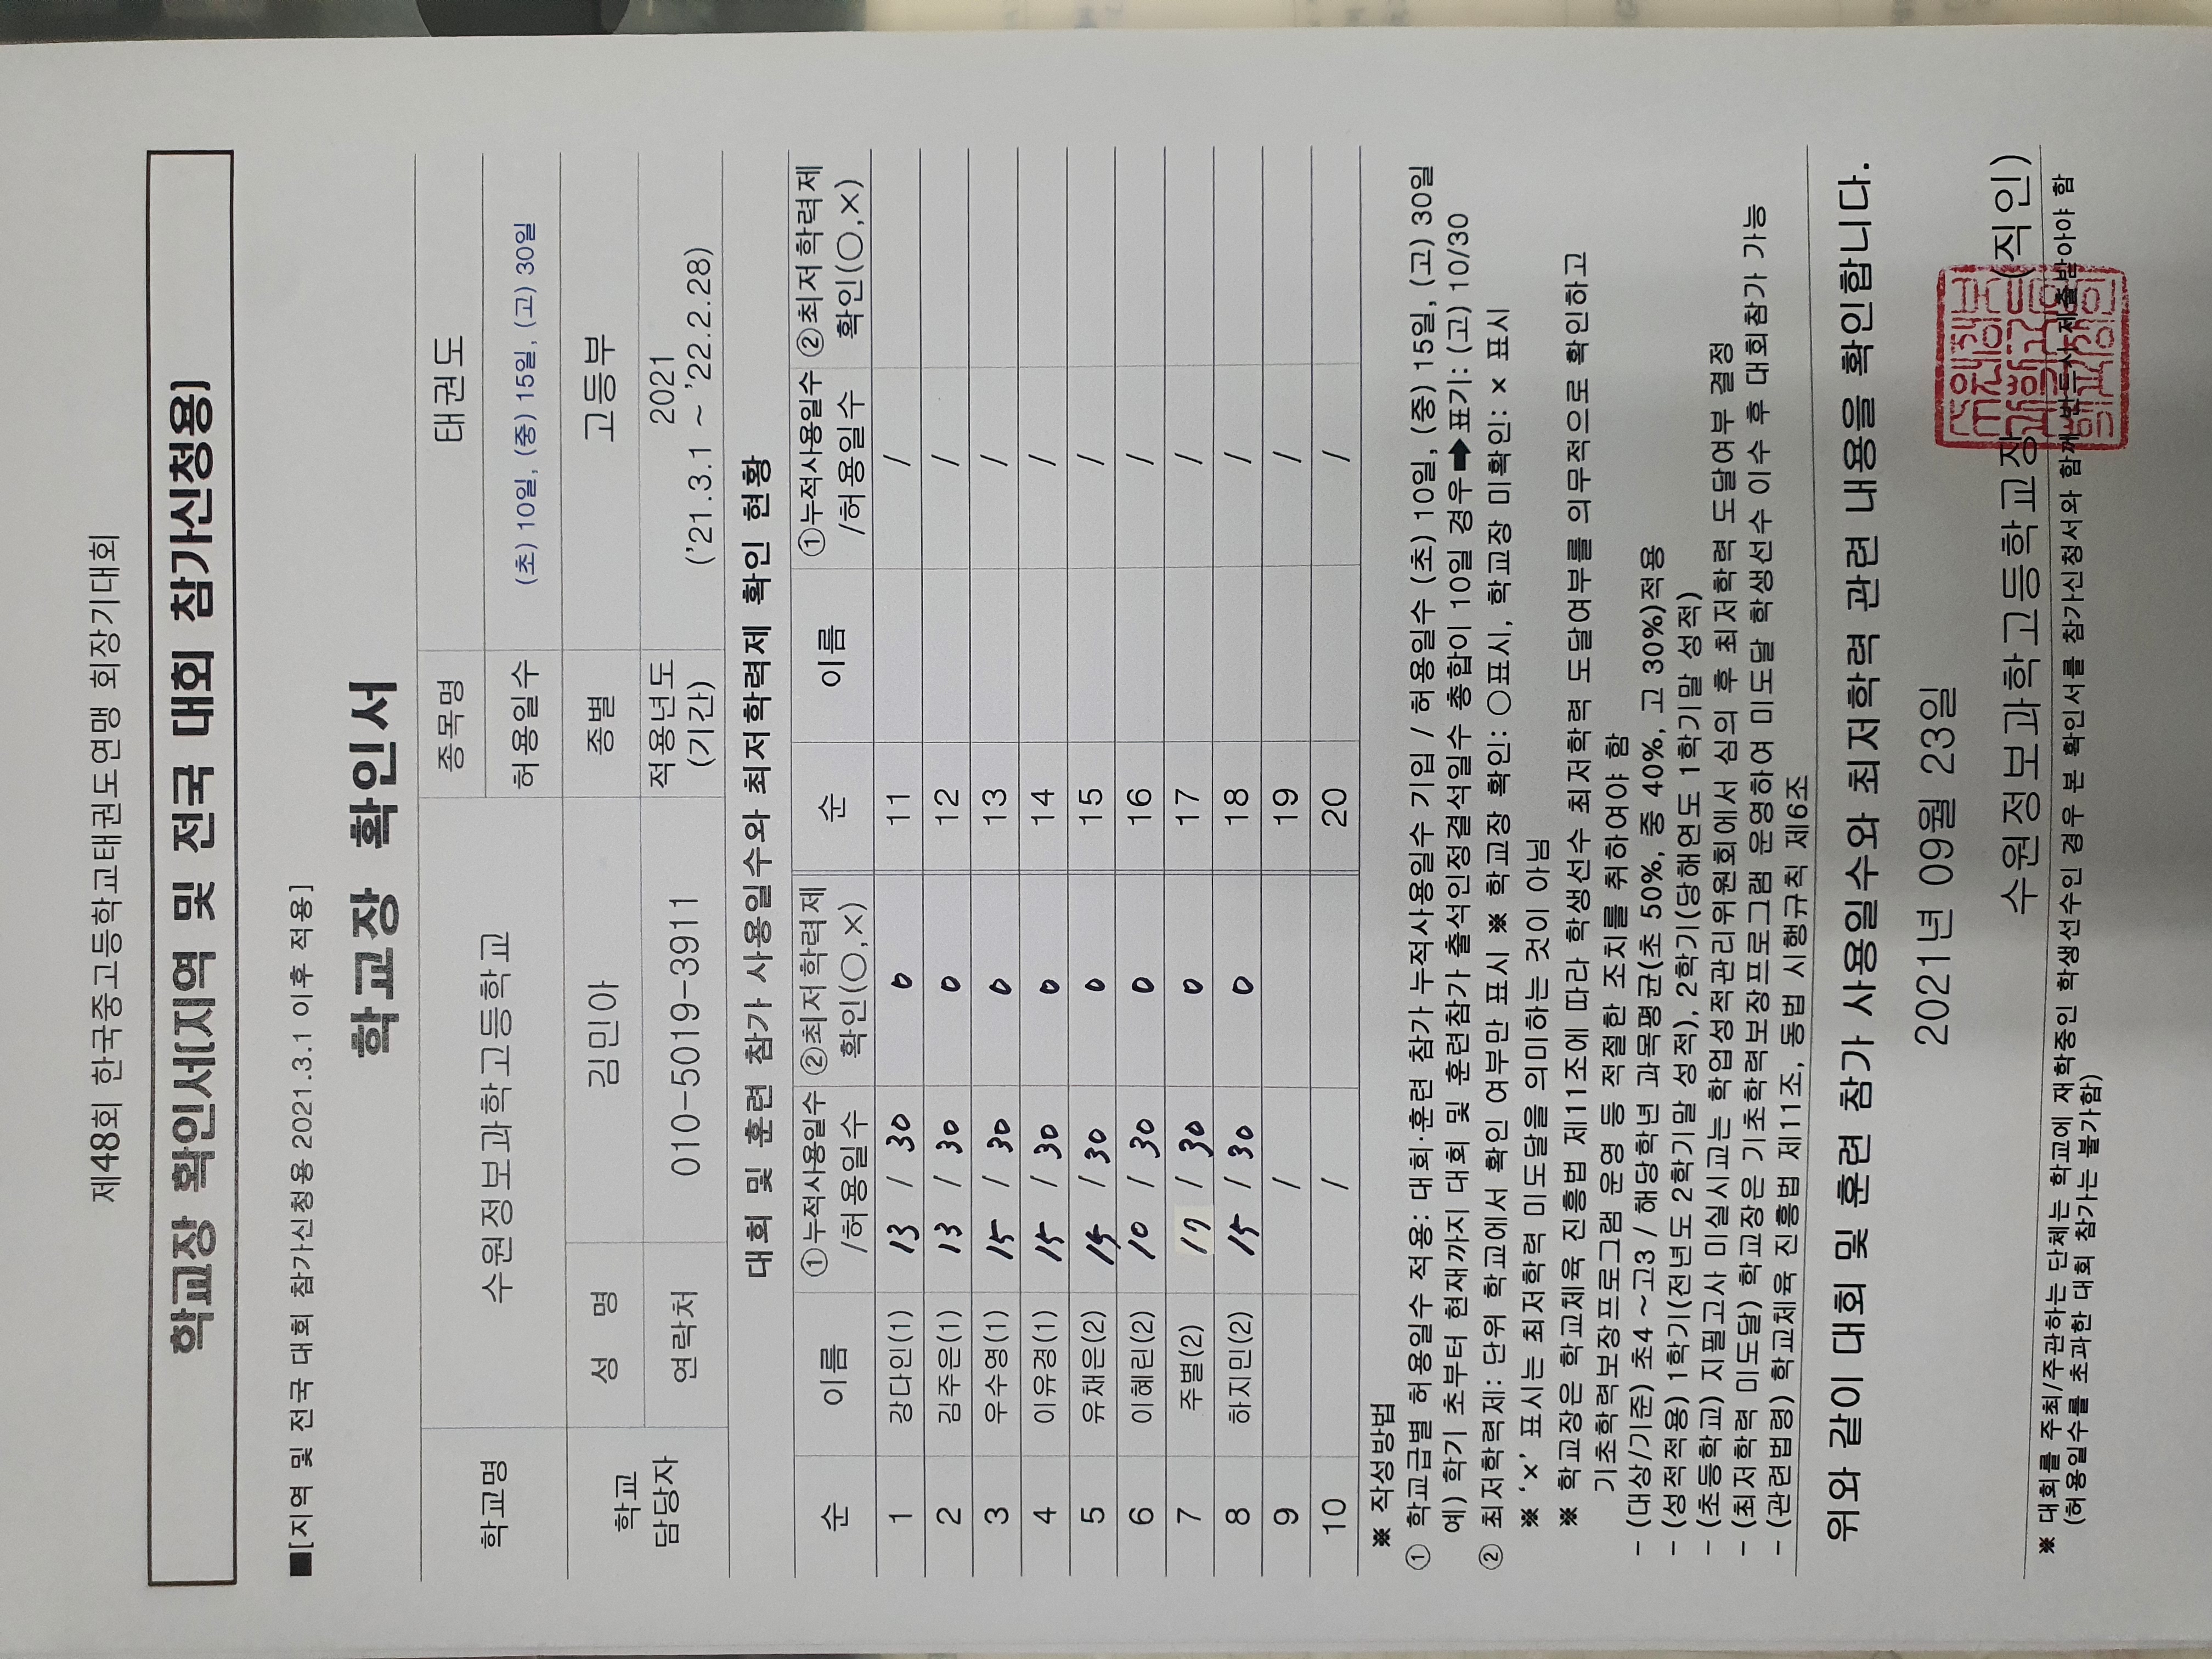 제48회 한국중고등학교태권도연맹 회장기대회
학교장 확인서(지역 및 전국 대회 참가신청용)
■[지역 및 전국 대회 참가신청용 2021.3.1 이후 적용]
학교장 확인서
학교명 수원정보과학고등학교 종목명 태권도
허용일수 (초) 10일, (중) 15일, (고) 30일
학교 담당자 성 명 김민아 종별 고등부
연락처 010-5019-3911 적용년도 (기간) 2021 ('21.3.1 ~ '22.2.28)
대회 및 훈련 참가 사용일수와 최저학력제 확인 현황
순 이름 ①누적사용일수 /허용일수 ②최저학력제 확인(○,×) 순 이름 ①누적사용일수 /허용일수 ②최저학력제 확인(○,×)
1 강다인(1) 13 / 30 0 11 /
2 김주은(1) 13 / 30 0 12 /
3 우수영(1) 15 / 30 0 13 /
4 이유경(1) 15 / 30 0 14 /
5 유채은(2) 15 / 30 0 15 /
6 이혜린(2) 10 / 30 0 16 /
7 주별(2) 17 / 30 0 17 /
8 하지민(2) 15 / 30 0 18 /
9 / 19 /
10 / 20 /
※ 작성방법
① 학교급별 허용일수 적용: 대회·훈련 참가 누적사용일수 기입 / 허용일수 (초) 10일, (중) 15일, (고) 30일
예) 학기 초부터 현재까지 대회 및 훈련참가 출석인정결석일수 총합이 10일 경우➡표기: (고) 10/30
② 최저학력제: 단위 학교에서 확인 여부만 표시 ※ 학교장 확인: ○표시, 학교장 미확인: × 표시
※ '×' 표시는 최저학력 미도달을 의미하는 것이 아님
※ 학교장은 학교체육 진흥법 제11조에 따라 학생선수 최저학력 도달여부를 의무적으로 확인하고
기초학력보장프로그램 운영 등 적절한 조치를 취하여야 함
- (대상/기준) 초4 ~고3 / 해당학년 과목평균(초 50%, 중 40%, 고 30%)적용
- (성적적용) 1학기(전년도 2학기말 성적), 2학기(당해연도 1학기말 성적)
- (초등학교) 지필고사 미실시교는 학업성적관리위원회에서 심의 후 최저학력 도달여부 결정
- (최저학력 미도달) 학교장은 기초학력보장프로그램 운영하여 미도달 학생선수 이수 후 대회참가 가능
- (관련법령) 학교체육 진흥법 제11조, 동법 시행규칙 제6조
위와 같이 대회 및 훈련 참가 사용일수와 최저학력 관련 내용을 확인합니다.
2021년 09월 23일
수원정보과학고등학교장 (직인)
※ 대회를 주최/주관하는 단체는 학교에 재학중인 학생선수인 경우 본 확인서를 참가신청서와 함께 반드시 제출받아야 함
(허용일수를 초과한 대회 참가는 불가함)